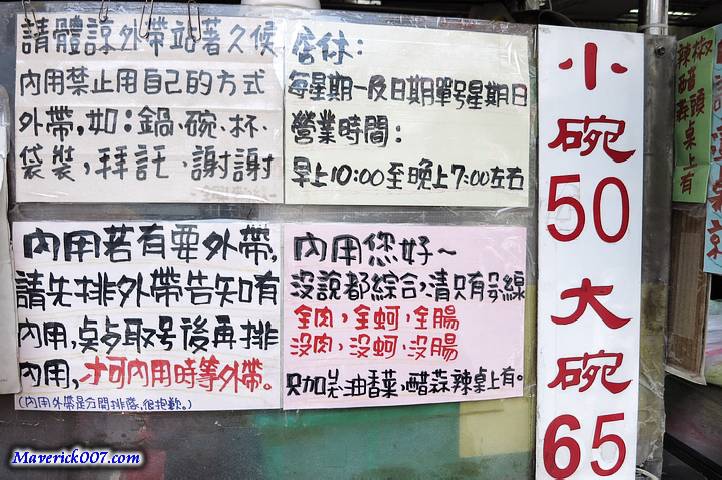 請體諒外帶站著久候
內用禁止用自己的方式
外帶,如:鍋、碗、杯、
袋裝,拜託、謝謝
店休:
每星期一及日期單號星期日
營業時間:
早上10:00至晚上7:00左右
內用若有要外帶,
請先排外帶告知有
內用,
取號後再排
內用,才可內用時等外帶。
(內用外帶是分開排隊,很抱歉。)
內用您好~
沒說都綜合,清只有
線
全肉,全蚵,全腸
沒肉,沒蚵,沒腸
只加
油香菜,醋蒜辣桌上有。
小
碗
50
大
碗
65
辣椒
醋
蒜頭
桌上有
Maverick007.com